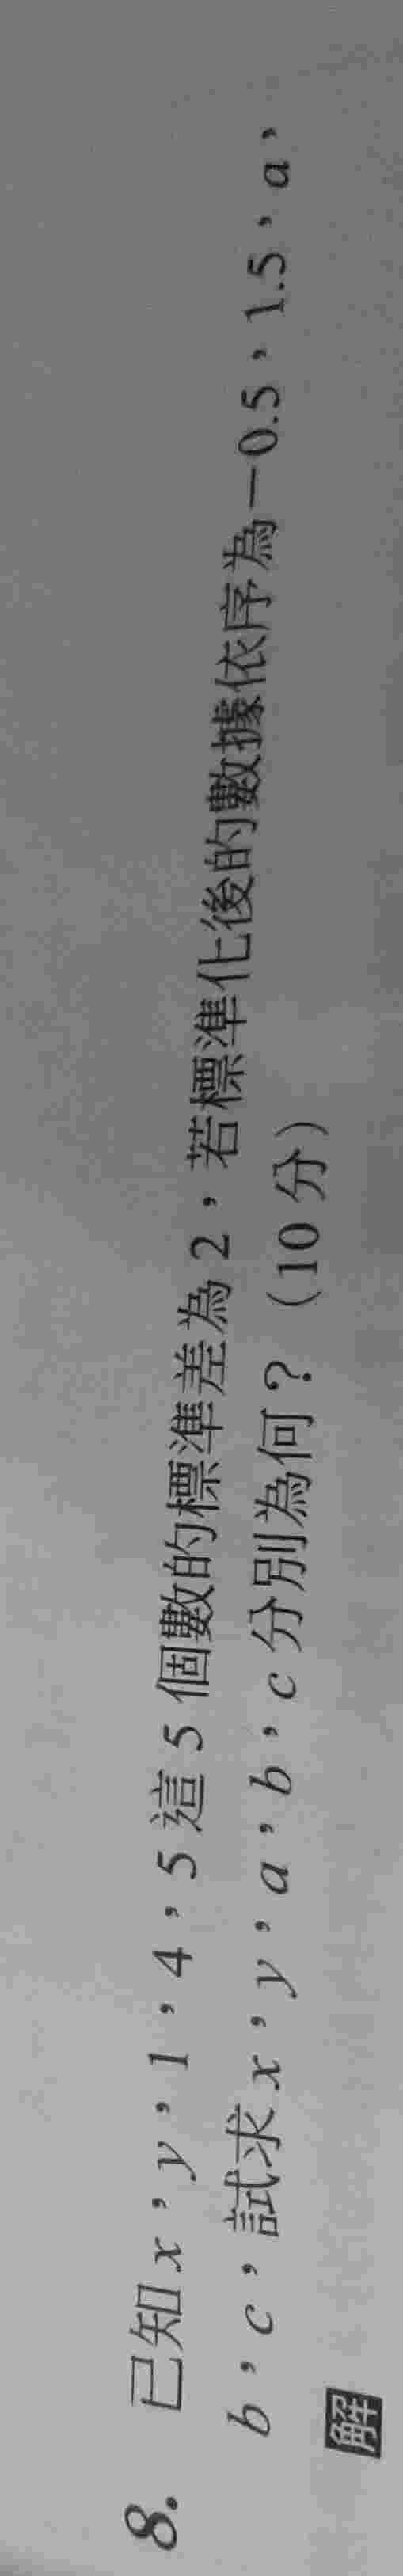 8. 已知 x，y，1，4，5 這 5 個數的標準差為 2，若標準化後的數據依序為－0.5，1.5，a，
b，c，試求 x，y，a，b，c 分別為何？（10 分）
解